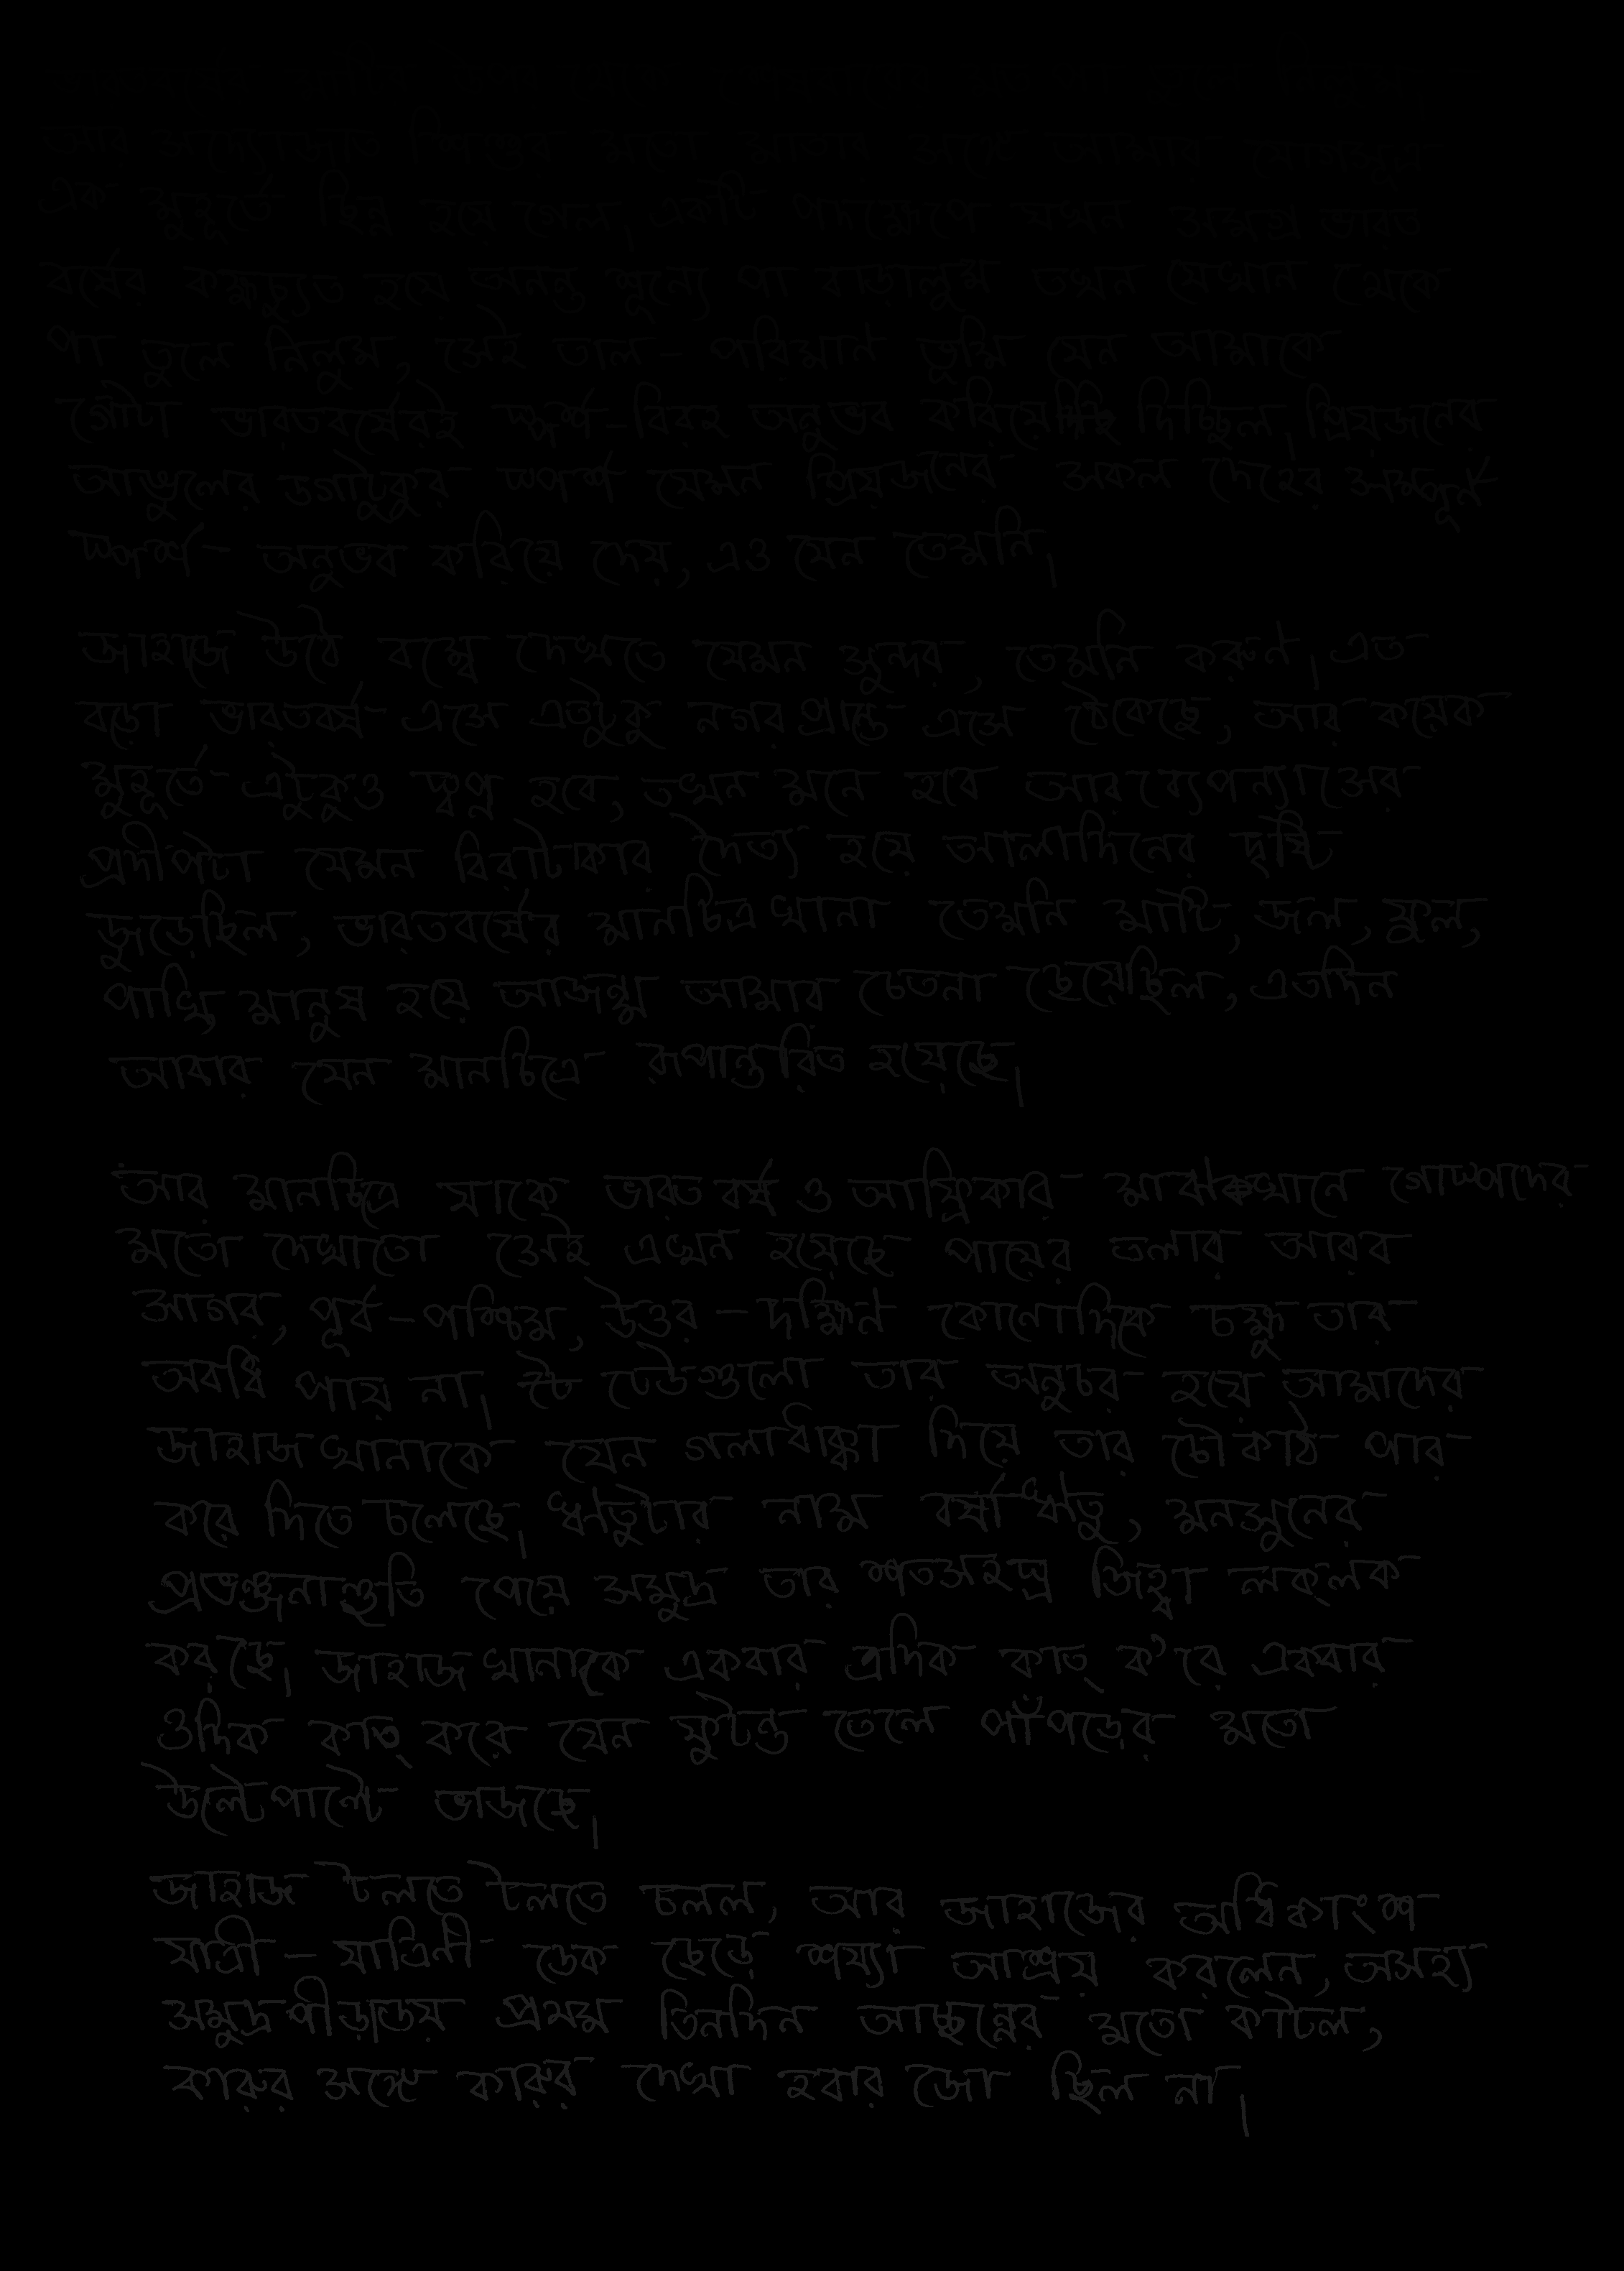 আর সদ্যোজাত শিশুর মতো মাতার সঙ্গে আমার যোগসূত্র
এক মুহূর্তে ছিন্ন হয়ে গেল। একটি পদক্ষেপে যখন সমগ্র ভারত
বর্ষের কক্ষচ্যুত হয়ে অনন্ত শূন্যে পা বাড়ালুম তখন যেখান থেকে
পা তুলে নিলুম, সেই তাল-পরিমান ভূমি যেন আমাকে
গোটা ভারতবর্ষেরই স্পর্শ-বিরহ অনুভব করিয়ে দিচ্ছিল। প্রিয়জনের
আঙুলের ডগাটুকুর স্পর্শ যেমন প্রিয়জনের সকল দেহের সম্পূর্ণ
স্পর্শ অনুভব করিয়ে দেয়, এও যেন তেমনি।
জাহাজে উঠে বম্বে দেখতে যেমন সুন্দর, তেমনি করুণ। এত
বড়ো ভারতবর্ষ এসে এতটুকু নগর প্রান্তে এসে ঠেকেছে, আর কয়েক
মুহূর্তে এটুকুও স্বপ্ন হবে, তখন মনে হবে আরব্যোপন্যাসের
প্রদীপটা যেমন বিরাটাকার দৈত্য হয়ে আলাদিনের দৃষ্টি
জুড়েছিল, ভারতবর্ষের মানচিত্র খানা তেমনি মাটি, জল, ফুল,
পাখি, মানুষ হয়ে আজন্ম আমার চেতনা ছেয়েছিল, এতদিন
আবার যেন মানচিত্রে রূপান্তরিত হয়েছে।
আর মানচিত্রে যাকে ভারত বর্ষ ও আফ্রিকার মাঝখানে গোষ্পদের
মতো দেখাতো সেই এখন হয়েছে পায়ের তলার আরব
সাগর, পূর্ব-পশ্চিম, উত্তর-দক্ষিণ কোনোদিকে চক্ষু তার
অবধি পায় না। ঢেউগুলো তার অনুচর হয়ে আমাদের
জাহাজখানাকে যেন গলাধাক্কা দিয়ে তার চৌকাঠ পার
করে দিতে চলেছে। ঋতুটার নাম বর্ষাঋতু, মনসুনের
প্রভঞ্জনাহুতি পেয়ে সমুদ্র তার শতসহস্র জিহ্বা লক্‌লক
করছে। জাহাজ খানাকে একবার এদিক কাত্ ক'রে একবার
ওদিক কাত্ করে যেন ফুটন্ত তেলে পাঁপড়ের মতো
উল্টে পাল্টে ভাজছে।
জাহাজ টলতে টলতে চলল, আর জাহাজের অধিকাংশ
যাত্রী-যাত্রিনী ডেক ছেড়ে শয্যা আশ্রয় করলেন, অসহ্য
সমুদ্রপীড়ায় প্রথম তিনদিন আচ্ছন্নের মতো কাটল,
কারুর সঙ্গে কারুর দেখা হবার জো ছিল না।